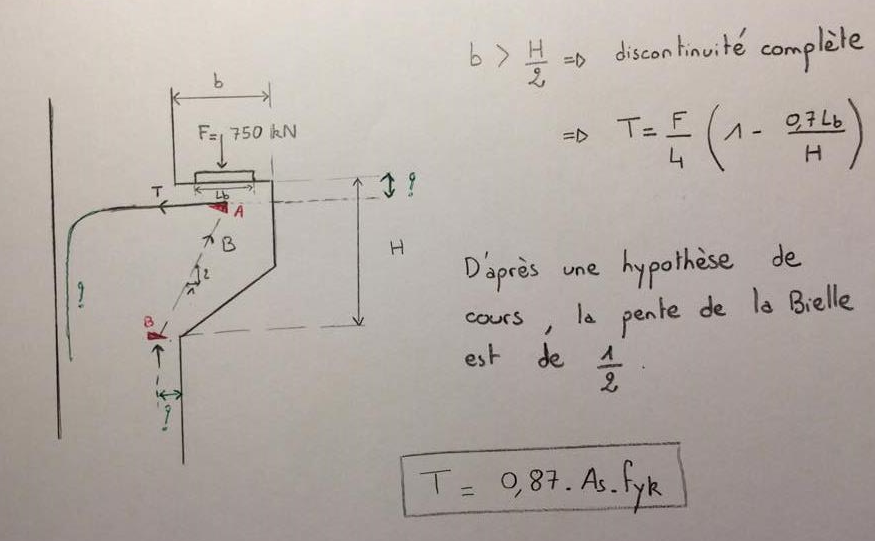 b > H/2 => discontinuité complète
=> T = F/4 (1 - 0,7 Lb/H)
b
F= 750 kN
T
Lb
A
?
B
H
2
1
?
B
?
D'après une hypothèse de
cours, la pente de la Bielle
est de 1/2.
T = 0,87. As. fyk